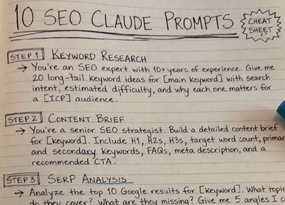 10 SEO CLAUDE PROMPTS
CHEAT
SHEET
STEP 1 KEYWORD RESEARCH
→ You're an SEO expert with 10+ years of experience. Give me
20 long-tail keyword ideas for [main keyword] with search
intent, estimated difficulty, and why each one matters for
a [ICP] audience.
STEP 2 CONTENT BRIEF
→ You're a senior SEO strategist. Build a detailed content brief
for [keyword]. Include H1, H2s, H3s, target word count, primar
and secondary keywords, FAQs, meta description, and a
recommended CTA.
STEP 3 SERP ANALYSIS
→ Analyze the top 10 Google results for [keyword]. What topic
do they cover? What are they missing? Give me 5 angles I c